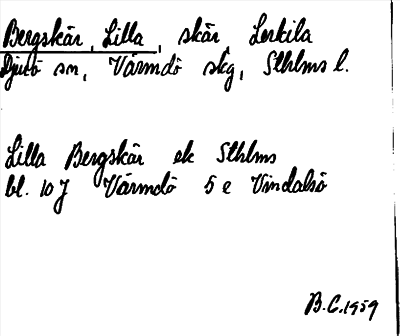 Bergskär, Lilla, skär Lerkila
Djurö sn, Värmdö skg, Sthlms l.
Lilla Bergskär ek Sthlms
bl. 10 J Värmdö 5 e Vindalsö
B.C. 1959